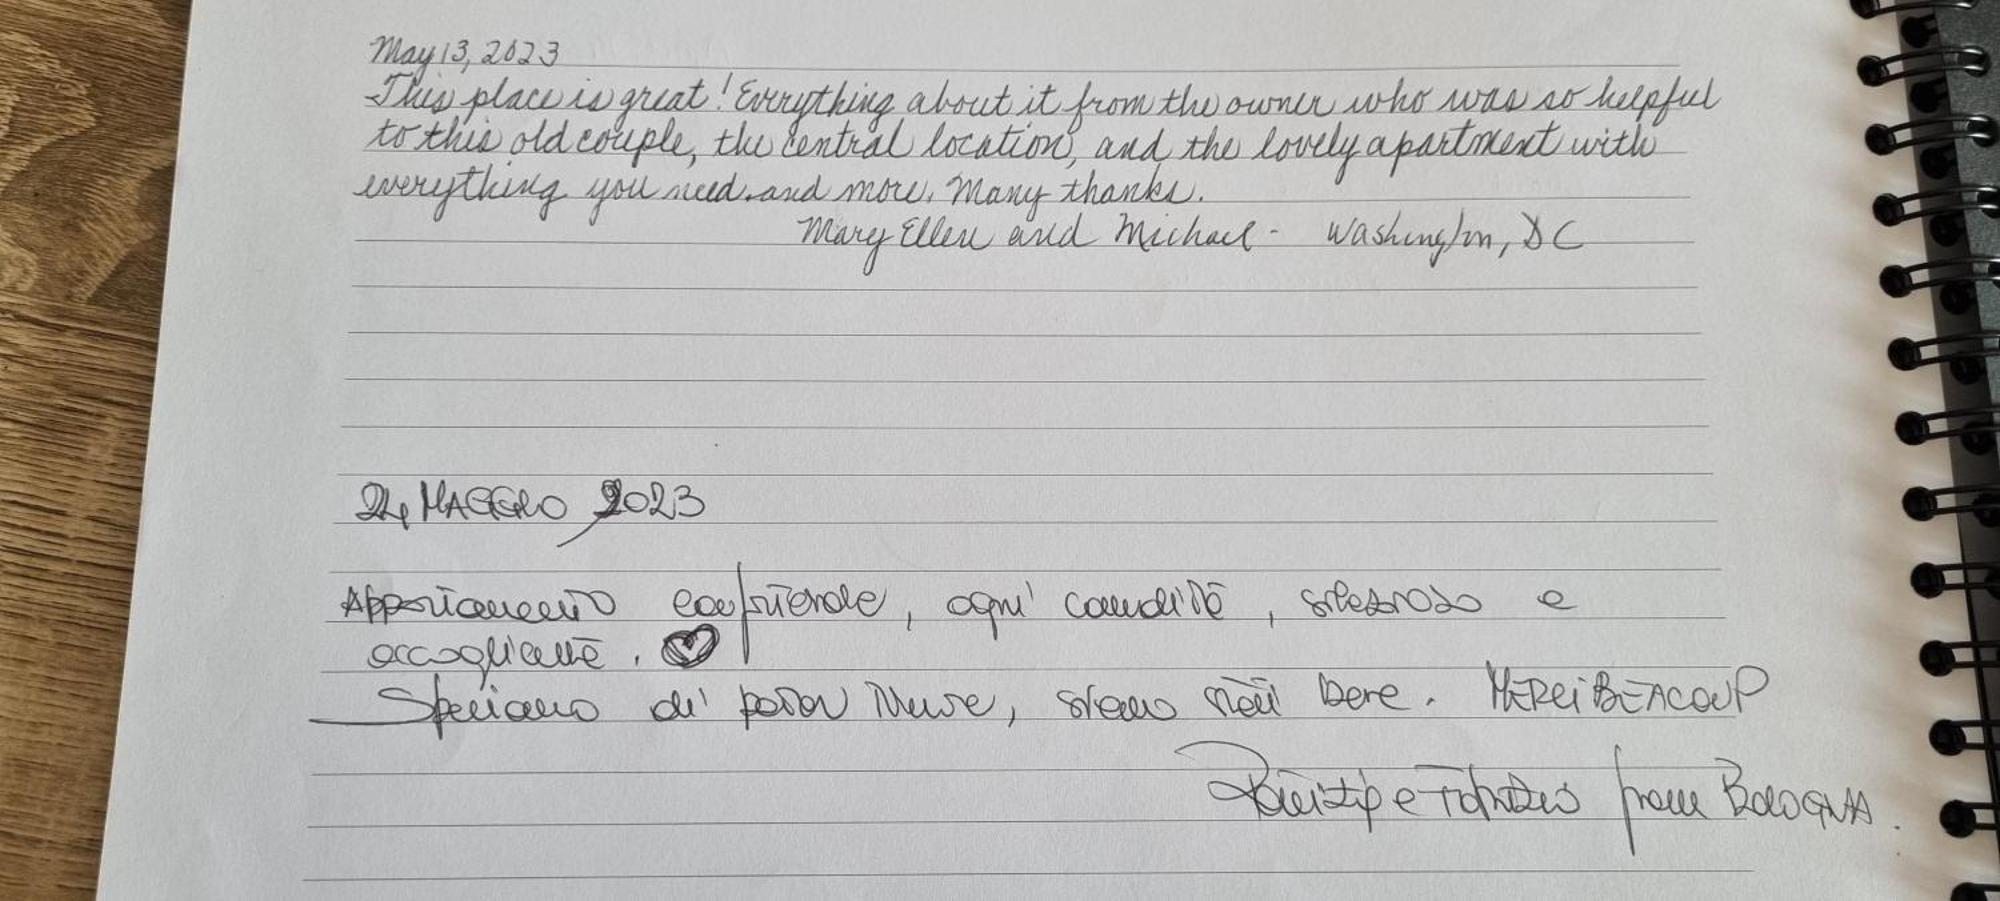 May 13, 2023
This place is great! Everything about it from the owner who was so helpful
to this old couple, the central location, and the lovely apartment with
everything you need and more. Many thanks.
Mary Ellen and Michael - Washington, DC
24 MAGGIO 2023
Appartamento confortevole, ogni comodità, silenzioso e
accogliente.
Speriamo di poter tornare, siamo stati bene. MERCI BEACOUP
e from BOLOGNA.